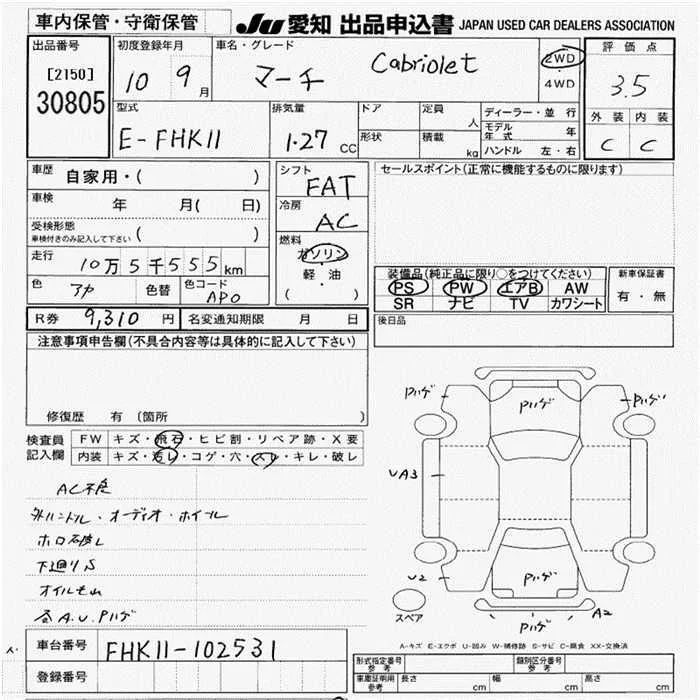 車内保管・守衛保管
JU 愛知 出品申込書 JAPAN USED CAR DEALERS ASSOCIATION
出品番号
[2150]
30805
初度登録年月
10 9月
車名・グレード
マーチ Cabriolet
2WD
・
4WD
評価点
3.5
外装 内装
C C
型式
E-FHK11
排気量
1.27 CC
ドア
形状
定員
人
積載
kg
ディーラー・並行
モデル年式 年
ハンドル 左・右
車歴 自家用・( )
車検 年 月( 日)
受検形態
車検付きのみ記入して下さい ( )
走行 10万5千555km
色 アカ 色替 色コード AP0
シフト
FAT
冷房
AC
燃料
ガソリン
・
軽・油
( )
セールスポイント(正常に機能するものに限ります)
装備品(純正品に限り○をつけてください)
PS PW エアB AW
SR ナビ TV カワシート
新車保証書
有・無
R券 9,310円 名変通知期限 月 日
後日品
注意事項申告欄(不具合内容等は具体的に記入して下さい)
修復歴 有 (箇所 )
検査員記入欄
FW キズ・飛石・ヒビ割・リペア跡・X要
内装 キズ・汚レ・コゲ・穴・スレ・キレ・破レ
AC不良
外ハンドル・オーディオ・ホイール
ホロ破レ
下廻りS
オイルモレ
各A.U.Pハゲ
Pハゲ
Pハゲ
Pハゲ
UA3
U2
Pハゲ
A2
Pハゲ
スペア
A-キズ E-エクボ U-凹み W-補修跡 S-サビ C-腐食 XX-交換済
車台番号 FHK11-102531
登録番号
形式指定番号 参考
類別区分番号 参考
車庫証明用 参考
長さ cm 幅 cm 高さ cm